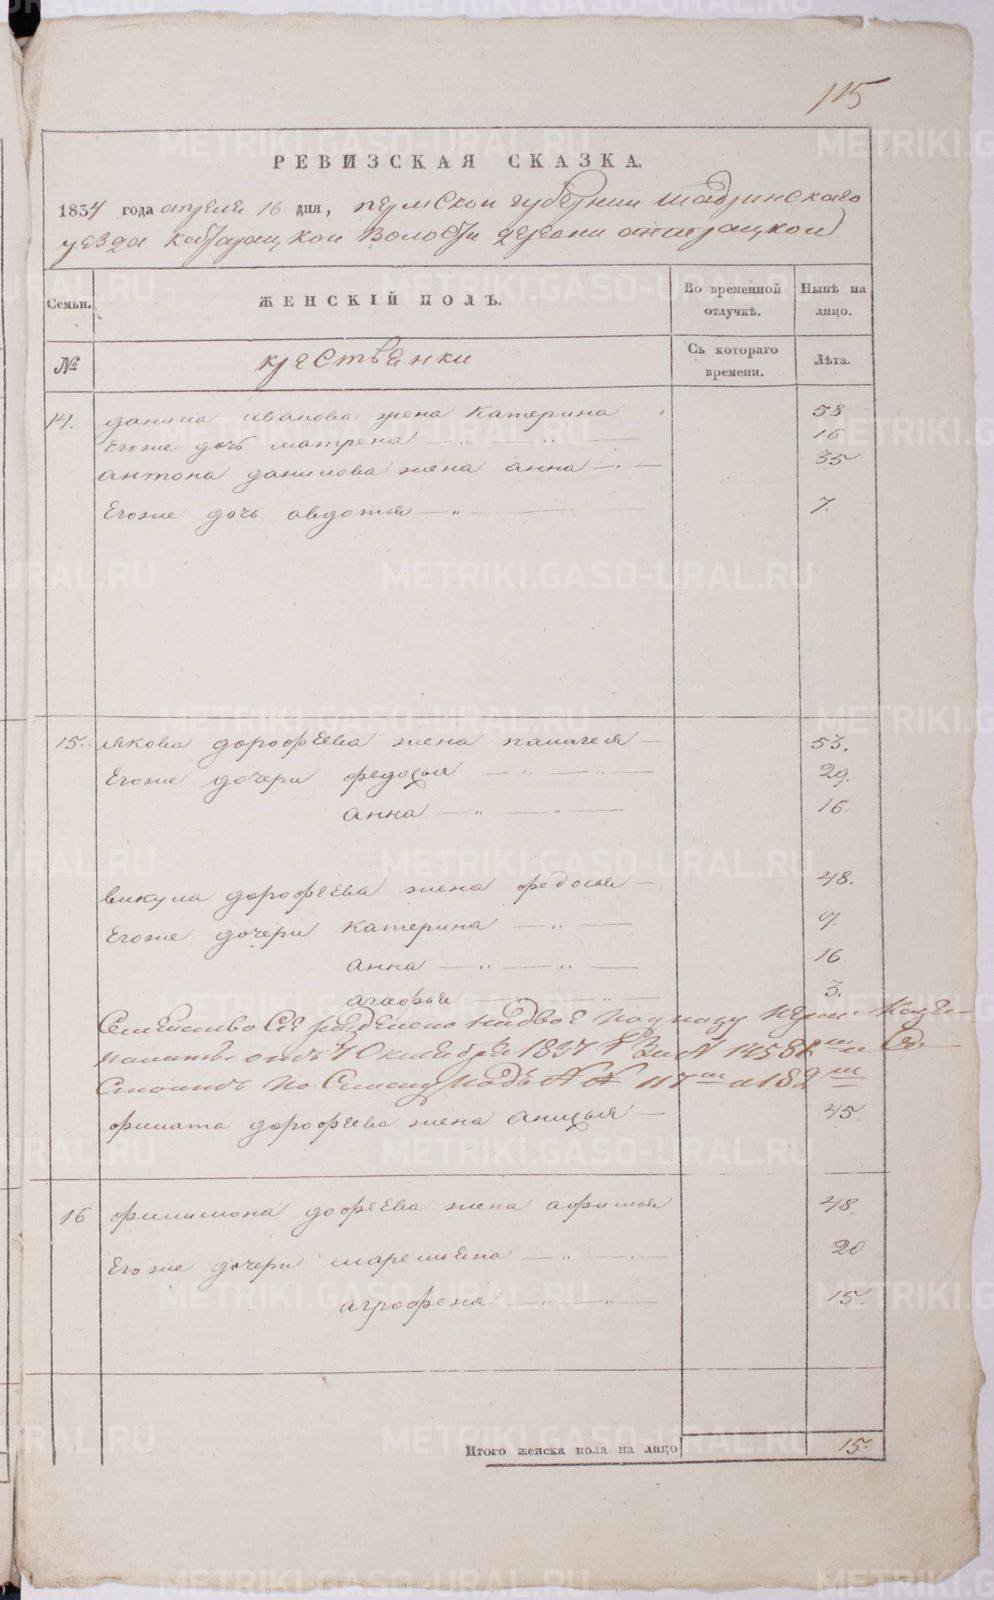 115
РЕВИЗСКАЯ СКАЗКА.
1834 года апреля 16 дня, пермской губернии шадринскаго
уезда волости деревни
Семьи. ЖЕНСКІЙ ПОЛЪ. Во временной отлучкѣ. Нынѣ на лицо.
№ крестьянки Съ котораго времени. Лѣта.
14. данила иванова жена Катерина 58
Егоже дочь матрена 16
антона данилова жена анна 35
Егоже дочь авдотья 7.
15. якова дорофеева жена палагея 53.
Егоже дочери федосья 29.
анна 16.
викула дорофеева жена федосья 48.
Егоже дочери Катерина 9.
анна 16
агафья 3.
Семейство Сіе разделено надвое По указу Перм: Казен-
палаты отъ 4 Октября 1837 Г За № 14588
по Списку Подъ №№ 117 и 182
филата дорофеева жена анисья 45.
16 филимона дофеева жена афимья 48.
Егоже дочери маремьяна 20
агрофена 15.
Итого женска пола на лицо 15.
METRIKI.GASO-URAL.RU